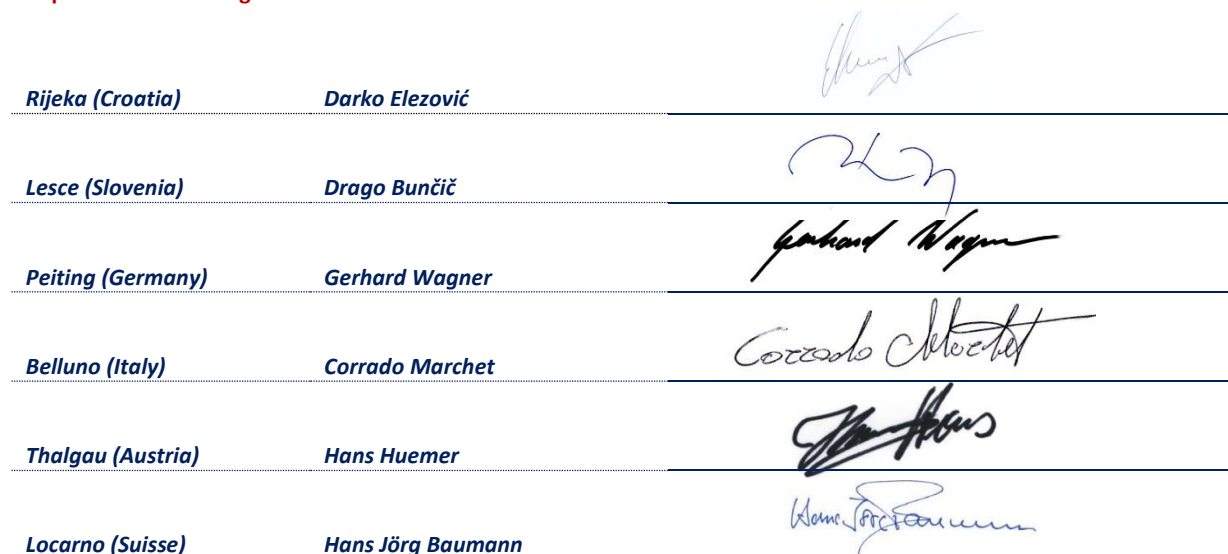 Rijeka (Croatia) Darko Elezović
Lesce (Slovenia) Drago Bunčič
Peiting (Germany) Gerhard Wagner
Gerhard Wagner
Belluno (Italy) Corrado Marchet
Corrado Marchet
Thalgau (Austria) Hans Huemer
Locarno (Suisse) Hans Jörg Baumann
Hans Jörg Baumann